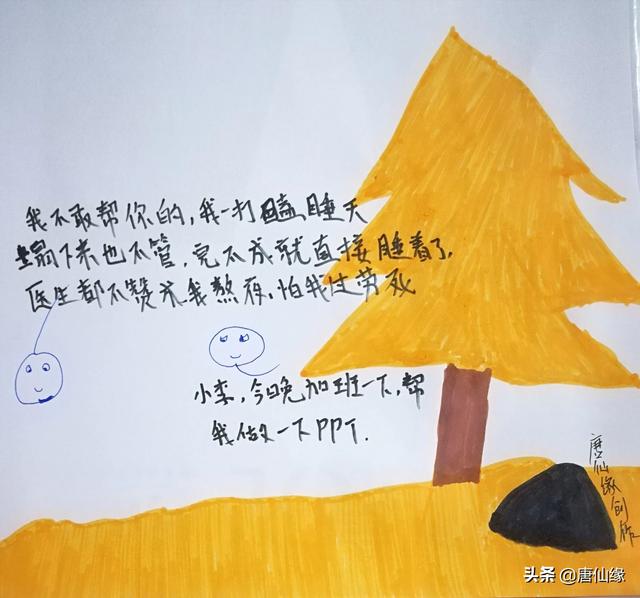 我不敢帮你的,我一打瞌睡天
塌下来也不管,完不成就直接睡着了,
医生都不赞成我熬夜,怕我过劳死
小李,今晚加班一下,帮
我做一下PPT.
唐仙缘创作
头条 @唐仙缘